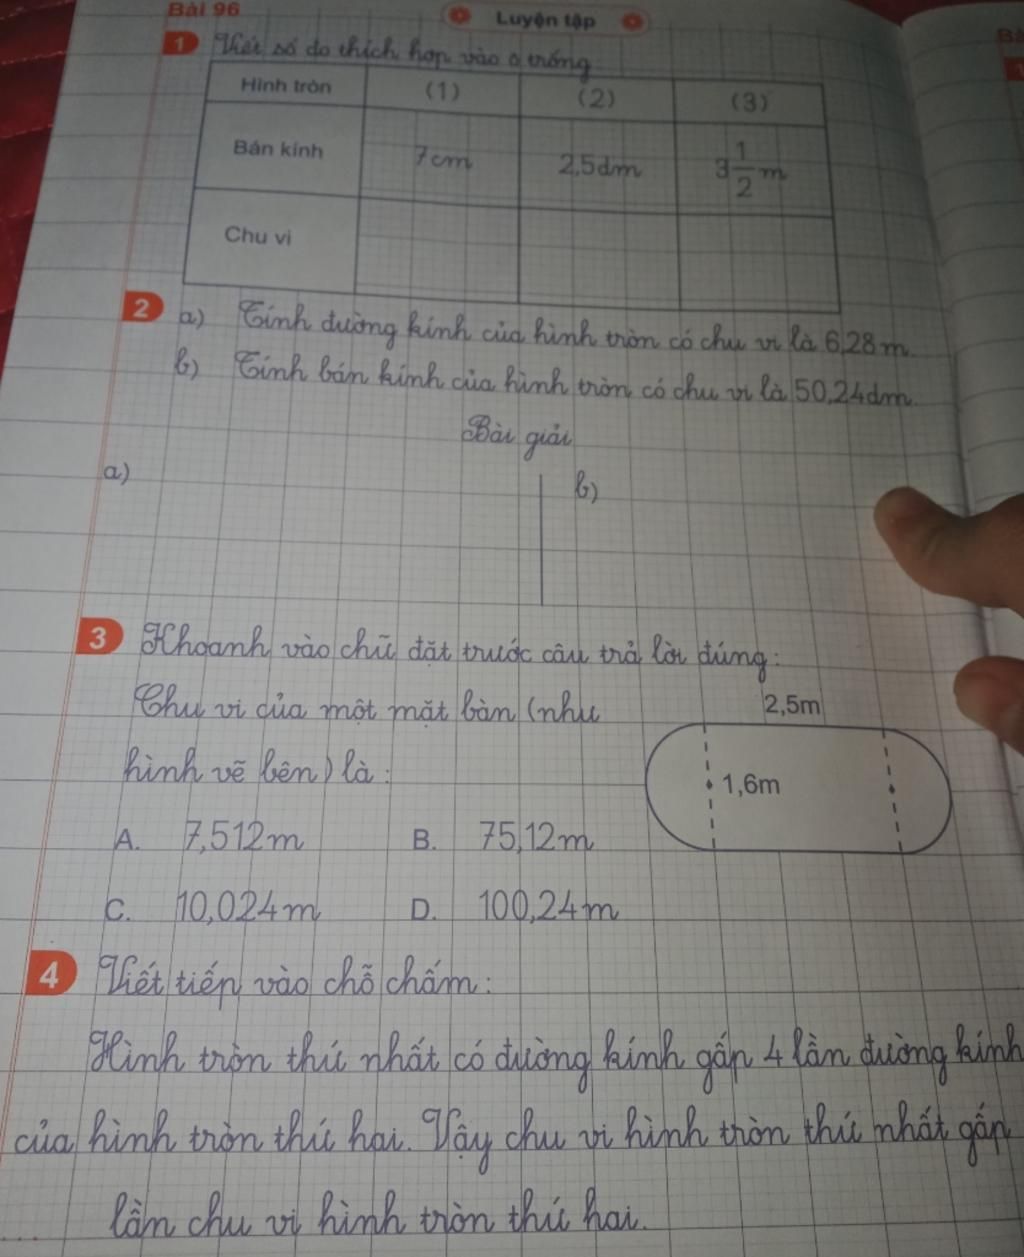 Bài 96
Luyện tập
1 Viết số đo thích hợp vào ô trống:
Hình tròn (1) (2) (3)
Bán kính 7cm 2,5dm 3 1/2 m
Chu vi
2 a) Tính đường kính của hình tròn có chu vi là 6,28m.
b) Tính bán kính của hình tròn có chu vi là 50,24dm.
Bài giải
a) b)
3 Khoanh vào chữ đặt trước câu trả lời đúng:
Chu vi của một mặt bàn (như
2,5m
hình vẽ bên) là:
1,6m
A. 7,512m B. 75,12m
C. 10,024m D. 100,24m
4 Viết tiếp vào chỗ chấm:
Hình tròn thứ nhất có đường kính gấp 4 lần đường kính
của hình tròn thứ hai. Vậy chu vi hình tròn thứ nhất gấp
.... lần chu vi hình tròn thứ hai.